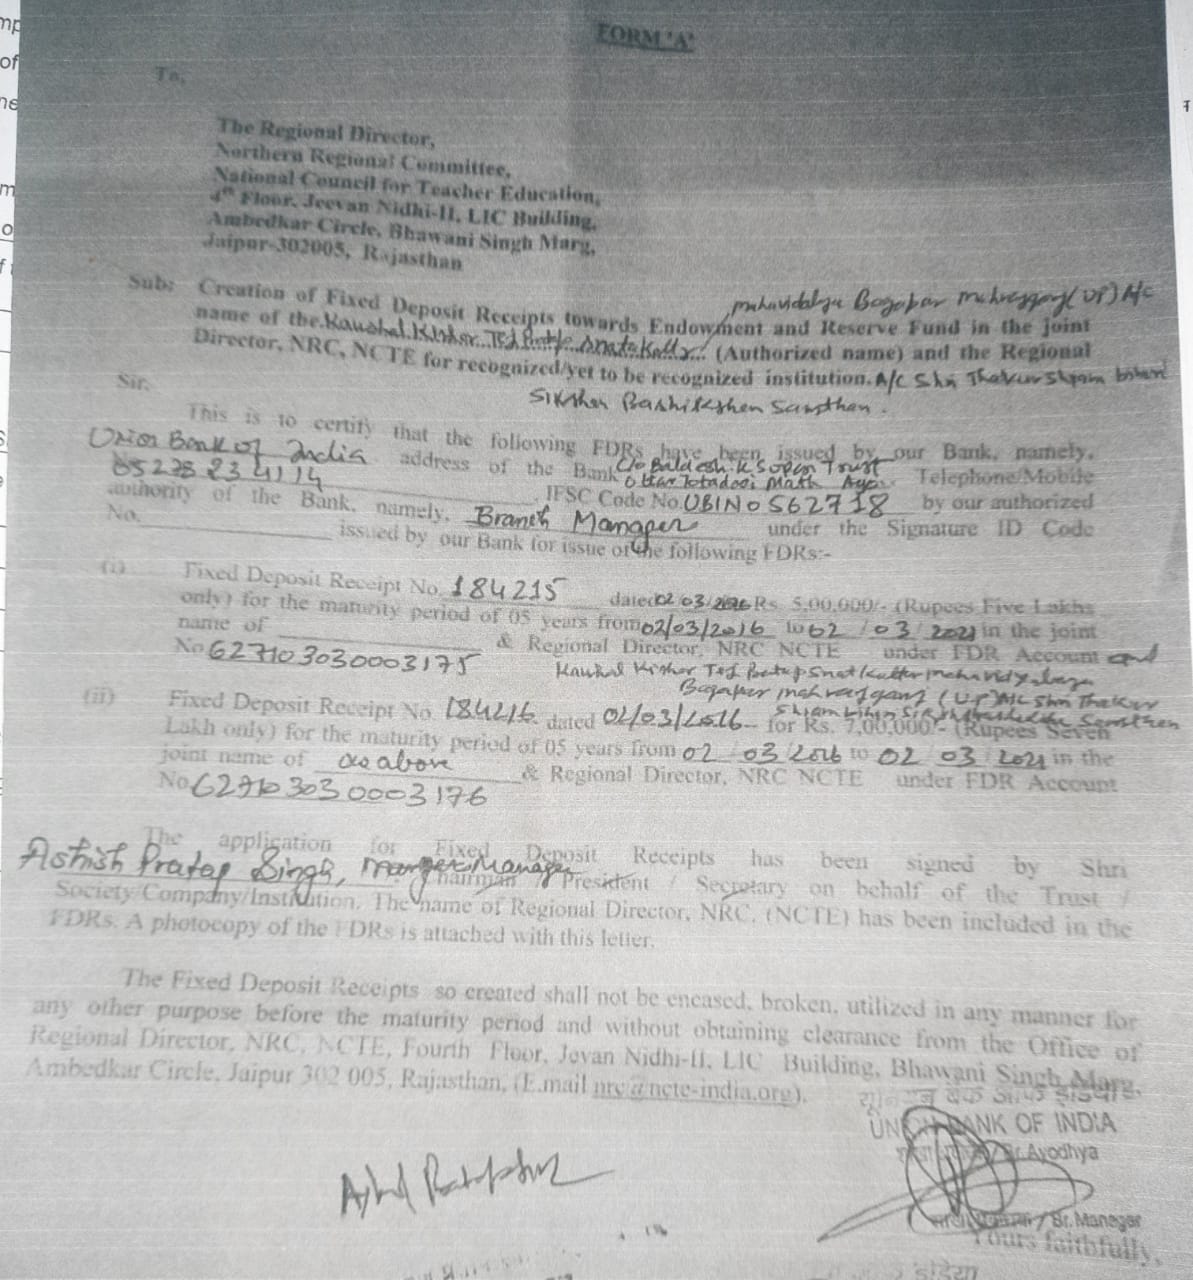 FORM 'A'
To,
The Regional Director,
Northern Regional Committee,
National Council for Teacher Education,
4th Floor, Jeevan Nidhi-II, LIC Building,
Ambedkar Circle, Bhawani Singh Marg,
Jaipur-302005, Rajasthan
(UP) A/c
Sub: Creation of Fixed Deposit Receipts towards Endowment and Reserve Fund in the joint
name of the Kaushal Kishor (Authorized name) and the Regional
Director, NRC, NCTE for recognized/yet to be recognized institution. A/C Shri Thakur Shyam
Sansthan.
Sir,
This is to certify that the following FDRs have been issued by our Bank, namely,
Union Bank of India address of the Bank Trust Telephone/Mobile
IFSC Code No. UBIN0562718 by our authorized
authority of the Bank, namely, Branch Manager under the Signature ID Code
No. issued by our Bank for issue of the following FDRs:-
(i) Fixed Deposit Receipt No. 184215 dated 02/03/2016 Rs 5,00,000/- (Rupees Five Lakhs
only) for the maturity period of 05 years from 02/03/2016 to 02/03/2021 in the joint
name of & Regional Director, NRC NCTE under FDR Account and
No 627103030003175
Kaushal Kishor
(U.P) A/c Shri Thakur
(ii) Fixed Deposit Receipt No. 184216 dated 02/03/2016 for Rs. 7,00,000/- (Rupees Seven
Lakh only) for the maturity period of 05 years from 02/03/2016 to 02/03/2021 in the
joint name of as above & Regional Director, NRC NCTE under FDR Account
No 627103030003176
The application for Fixed Deposit Receipts has been signed by Shri
Ashish Pratap Singh, Manager Chairman / President / Secretary on behalf of the Trust /
Society/Company/Institution. The name of Regional Director, NRC, (NCTE) has been included in the
FDRs. A photocopy of the FDRs is attached with this letter.
The Fixed Deposit Receipts so created shall not be encased, broken, utilized in any manner for
any other purpose before the maturity period and without obtaining clearance from the Office of
Regional Director, NRC, NCTE, Fourth Floor, Jevan Nidhi-II, LIC Building, Bhawani Singh Marg,
Ambedkar Circle, Jaipur 302 005, Rajasthan, (E.mail nrc@ncte-india.org).
UNION BANK OF INDIA
Br. Ayodhya
Br. Manager
Yours faithfully,